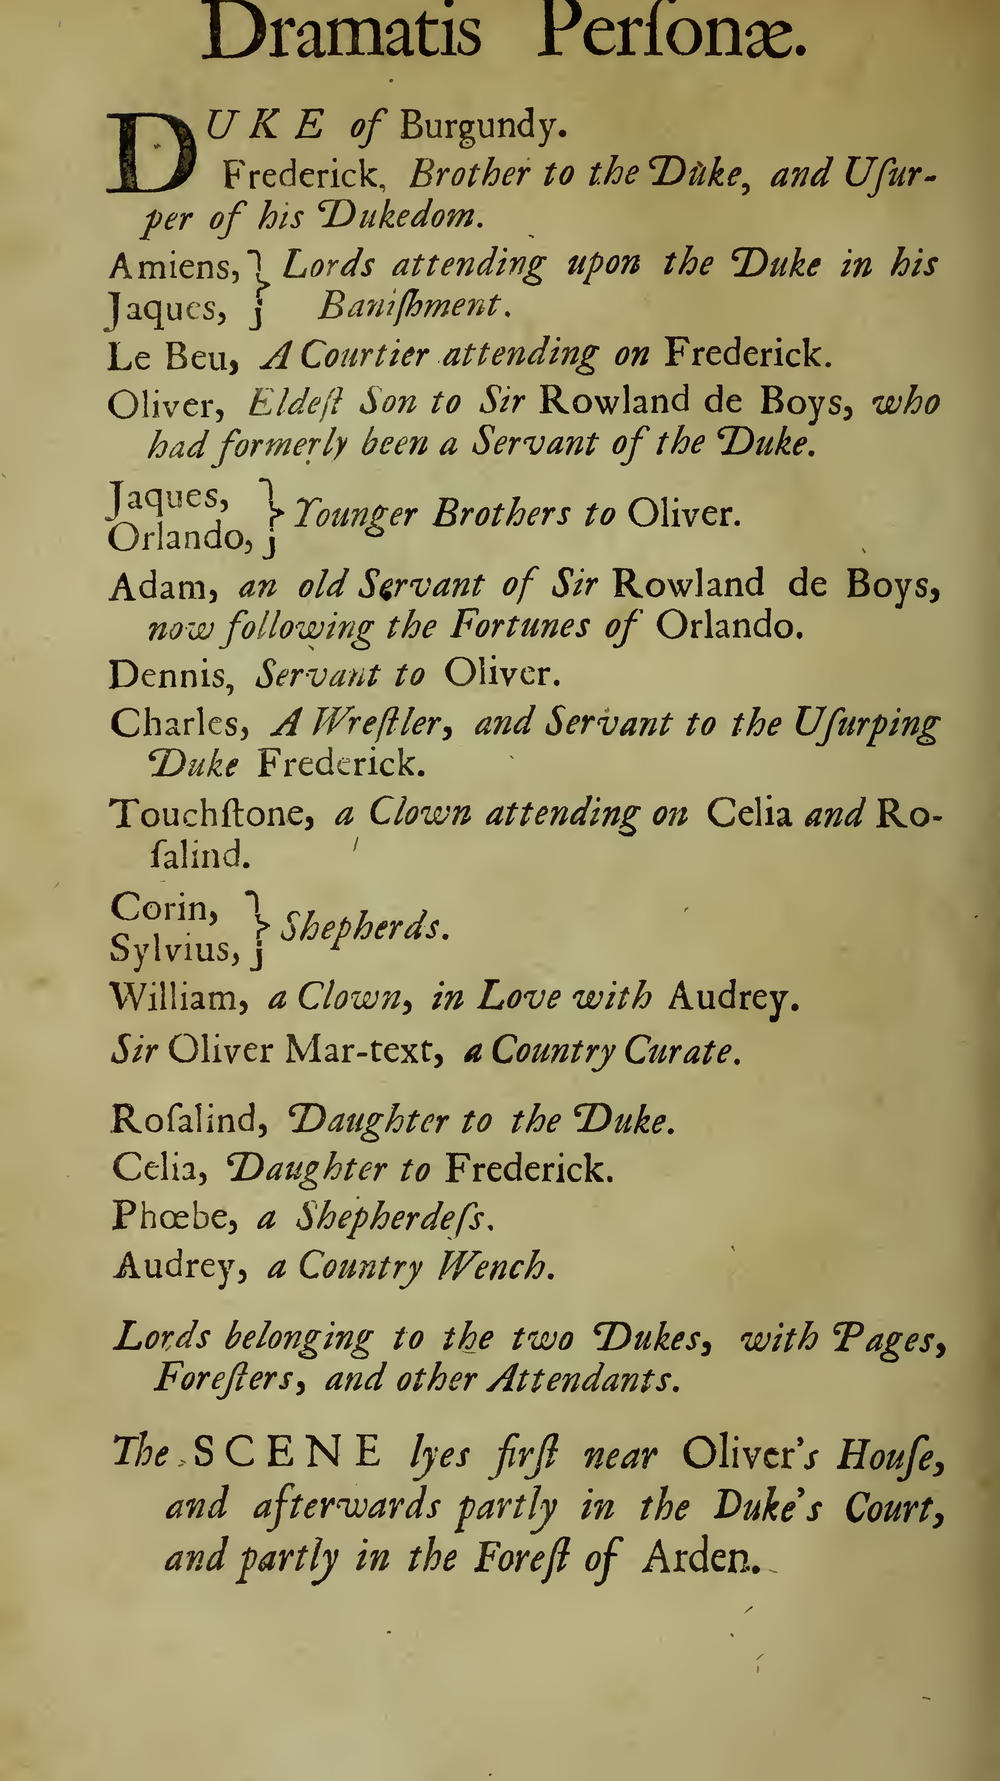 Dramatis Perſonæ.
DUKE of Burgundy.
Frederick, Brother to the Duke, and Uſur-
per of his Dukedom.
Amiens, } Lords attending upon the Duke in his
Jaques, } Baniſhment.
Le Beu, A Courtier attending on Frederick.
Oliver, Eldeſt Son to Sir Rowland de Boys, who
had formerly been a Servant of the Duke.
Jaques,
Orlando, } Younger Brothers to Oliver.
Adam, an old Servant of Sir Rowland de Boys,
now following the Fortunes of Orlando.
Dennis, Servant to Oliver.
Charles, A Wreſtler, and Servant to the Uſurping
Duke Frederick.
Touchſtone, a Clown attending on Celia and Ro-
ſalind.
Corin,
Sylvius, } Shepherds.
William, a Clown, in Love with Audrey.
Sir Oliver Mar-text, a Country Curate.
Roſalind, Daughter to the Duke.
Celia, Daughter to Frederick.
Phœbe, a Shepherdeſs.
Audrey, a Country Wench.
Lords belonging to the two Dukes, with Pages,
Foreſters, and other Attendants.
The SCENE lyes firſt near Oliver's Houſe,
and afterwards partly in the Duke's Court,
and partly in the Foreſt of Arden.